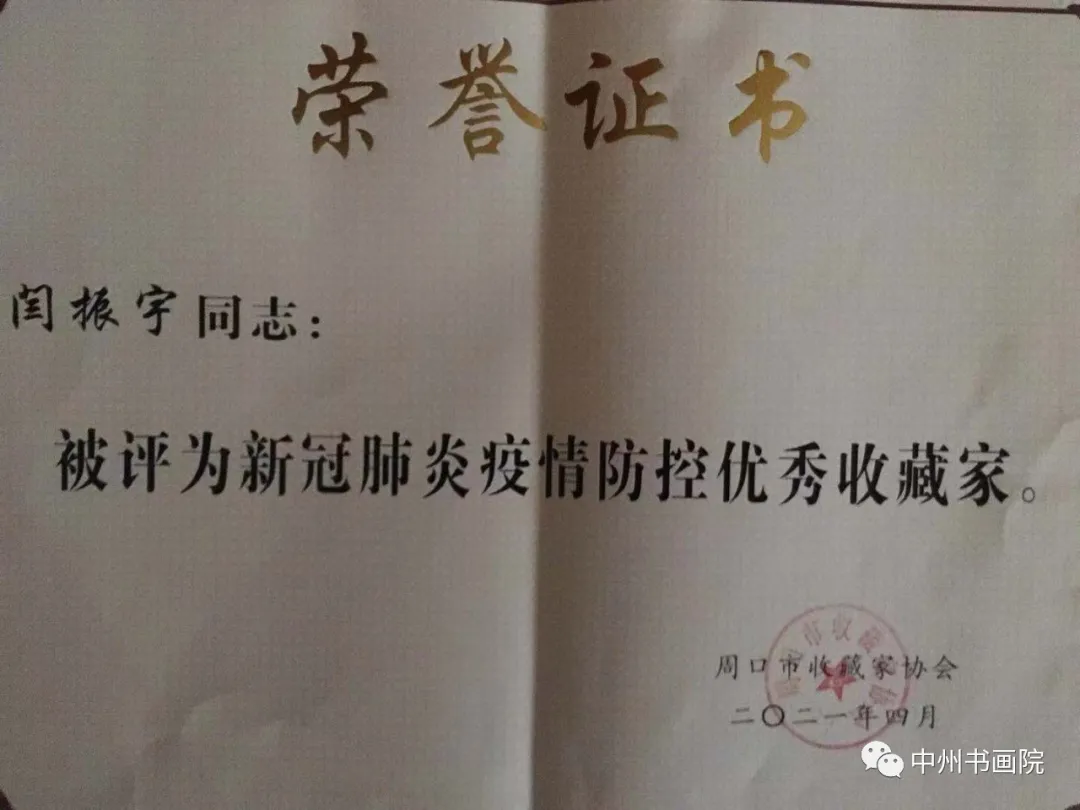 荣誉证书
闫振宇同志：
被评为新冠肺炎疫情防控优秀收藏家。
周口市收藏家协会
二〇二一年四月
中州书画院